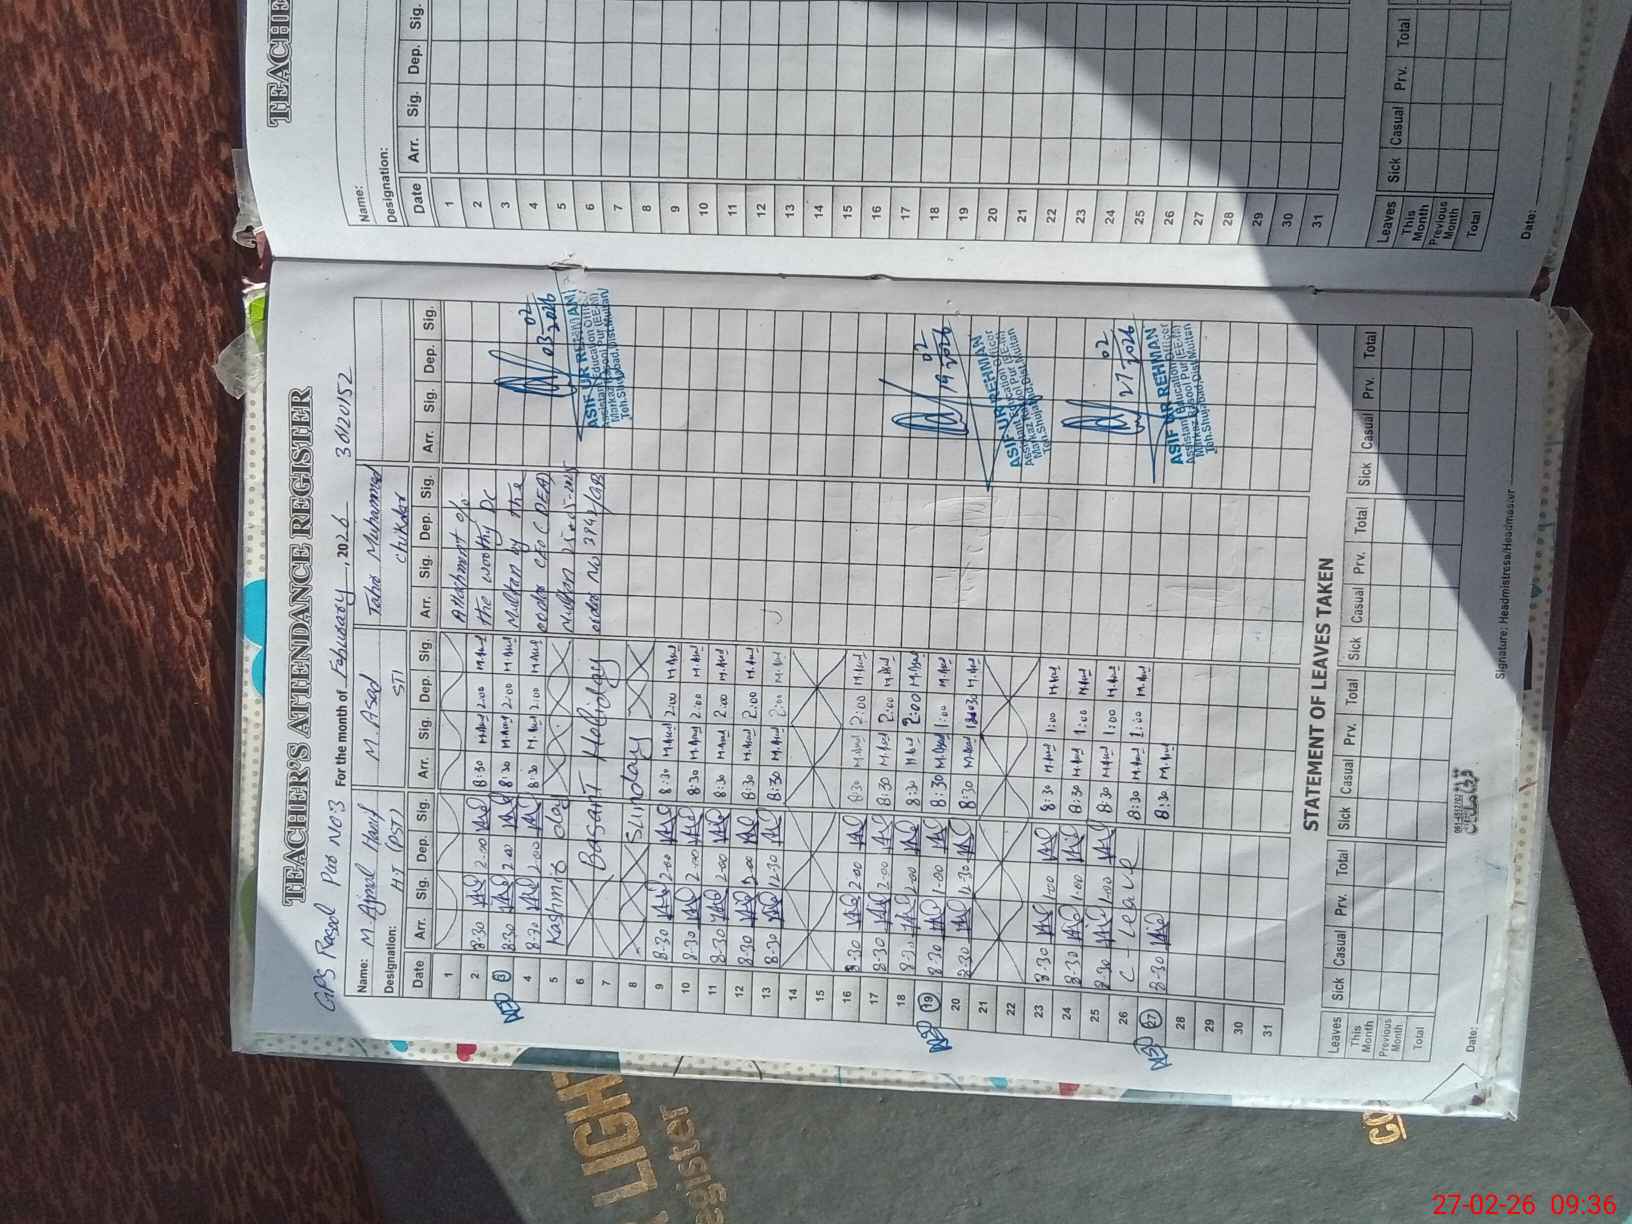 TEACHER'S ATTENDANCE REGISTER
GPS Rasol Pur No3 For the month of February, 2026 36120152
Name: M. Ajmal Hanif M. Asad Muhammad
Designation: HT (PST) STI
Date Arr. Sig. Dep. Sig. Arr. Sig. Dep. Sig. Arr. Sig. Dep. Sig. Arr. Sig. Dep. Sig.
1 Attachment o/o
2 8:30 2:00 8:30 M.Asd 2:00 M.Asd the worthy DC
3 8:30 2:00 8:30 M.Asd 2:00 M.Asd Multan by the
4 8:30 2:00 8:30 M.Asd 2:00 M.Asd order CEO (DEA)
5 Kashmir day Multan
6 order no
7 Basant Holiday
8 Sunday
9 8:30 2:00 8:30 M.Asd 2:00 M.Asd
10 8:30 2:00 8:30 M.Asd 2:00 M.Asd
11 8:30 2:00 8:30 M.Asd 2:00 M.Asd
12 8:30 2:00 8:30 M.Asd 2:00 M.Asd
13 8:30 12:30 8:30 M.Asd M.Asd
14
15
16 8:30 2:00 8:30 M.Asd 2:00 M.Asd
17 8:30 2:00 8:30 M.Asd 2:00 M.Asd
18 8:30 2:00 8:30 M.Asd 2:00 M.Asd
19 8:30 1:00 8:30 M.Asd 1:00 M.Asd
20 8:30 12:30 8:30 M.Asd M.Asd
21
22
23 8:30 1:00 8:30 M.Asd 1:00 M.Asd
24 8:30 1:00 8:30 M.Asd 1:00 M.Asd
25 8:30 1:00 8:30 M.Asd 1:00 M.Asd
26 C - Leave 8:30 M.Asd 1:00 M.Asd
27 8:30 8:30 M.Asd
28
29
30
31
03 02 2026
ASIF UR REHMAN
Assistant Education Officer
Markaz Rasool Pur (EE-M)
Teh.Shujabad,Dist.Multan
19 02 2026
ASIF UR REHMAN
Assistant Education Officer
Markaz Rasool Pur (EE-M)
Teh.Shujabad,Dist.Multan
27 02 2026
ASIF UR REHMAN
Assistant Education Officer
Markaz Rasool Pur (EE-M)
Teh.Shujabad,Dist.Multan
STATEMENT OF LEAVES TAKEN
Leaves Sick Casual Prv. Total Sick Casual Prv. Total Sick Casual Prv. Total Sick Casual Prv. Total
This Month
Previous Month
Total
Date: Signature: Headmistress/Headmaster
TEACHE
Name:
Designation:
Date Arr. Sig. Dep. Sig.
1
2
3
4
5
6
7
8
9
10
11
12
13
14
15
16
17
18
19
20
21
22
23
24
25
26
27
28
29
30
31
Leaves Sick Casual Prv. Total
This Month
Previous Month
Total
Date:
LIGHT
egister
CO
27-02-26 09:36